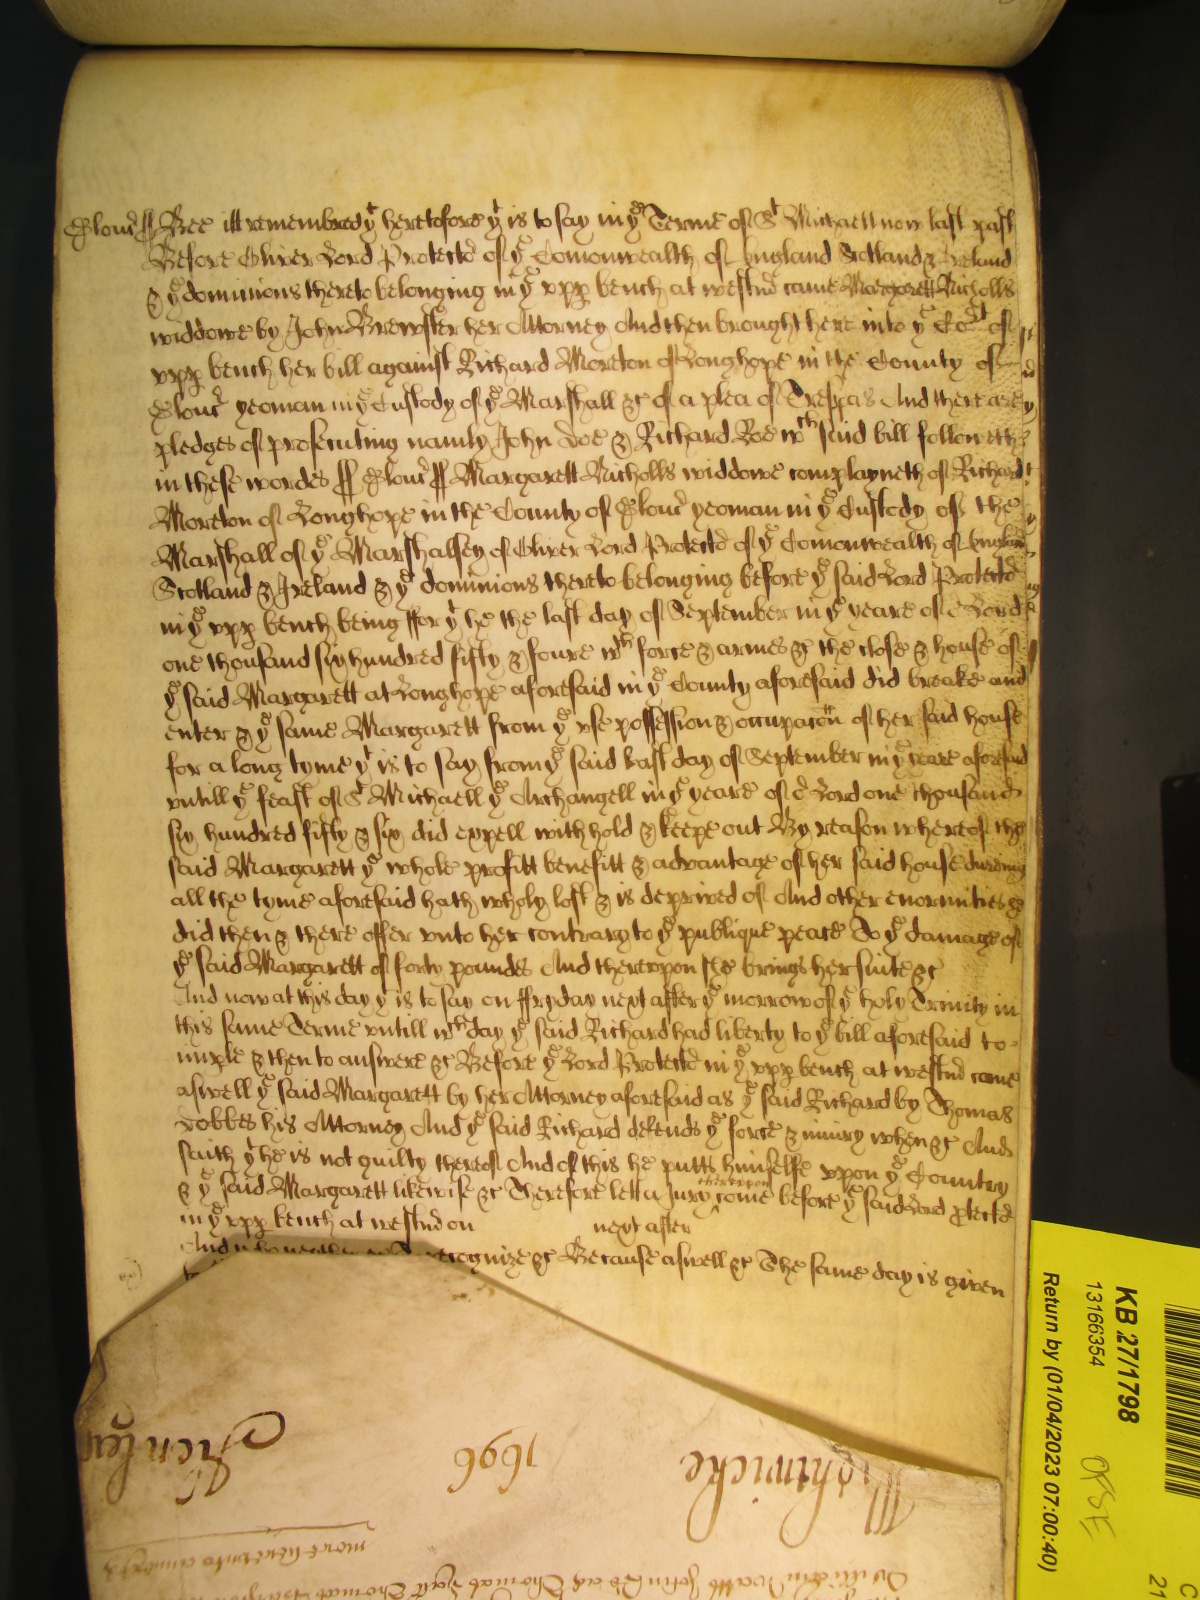 Glouc̃ ss Bee itt remembred yt heretofore yt is to say in ye Terme of St Michaell now last past
Before Oliver Lord Protectoʳ of ye Comonwealth of England Scotland & Ireland
& ye dominions thereto belonging in ye vpp bench at westm̃ came Margarett Nicholls
widdowe by John Brewster her Attorney And then brought here into ye Cort of
vpp bench her bill against Richard Moreton of Longhope in the County of
Glouc̃ yeoman in ye Custody of ye Marshall &c of a plea of Trespas And there are
pledges of prosecuting namly John Doe & Richard Roe wch said bill followeth
in these wordes ss Glouc̃ ss Margarett Nicholls widdowe complayneth of Richard
Moreton of Longhope in the County of Glouc̃ yeoman in ye Custody of the
Marshall of ye Marshalsey of Oliver Lord Protectoʳ of ye Comonwealth of England
Scotland & Ireland & ye dominions thereto belonging before ye said Lord Protectoʳ
in ye vpp bench being ffor yt he the last day of September in ye yeare of oʳ Lord
one thousand six hundred fifty & foure wth force & armes &c the close & house of
ye said Margarett at Longhope aforesaid in ye County aforesaid did breake and
enter & ye same Margarett from ye vse possession & occupacõn of her said house
for a long tyme yt is to say from ye said last day of September in ye yeare aforesaid
vntill ye feast of St Michaell ye Archangell in ye yeare of oʳ Lord one thousand
six hundred fifty & six did expell withhold & keepe out By reason whereof the
said Margarett ye whole profitt benefitt & advantage of her said house during
all the tyme aforesaid hath wholy lost & is deprived of And other enormities &c
did then & there offer vnto her contrary to ye publique peace To ye damage of
ye said Margarett of forty poundes And therevpon she brings her suite &c
And now at this day yt is to say on ffryday next after ye morrow of ye holy Trinity in
this same Terme vntill wch day ye said Richard had liberty to ye bill aforesaid to
imple & then to answere &c Before ye Lord Protectoʳ in ye vpp bench at westm̃ came
aswell ye said Margarett by her Attorney aforesaid as ye said Richard by Thomas
Dobbes his Attorney And ye said Richard defends ye force & iniury when &c And
saith yt he is not guilty thereof And of this he putts himselfe vpon ye Country
& ye said Margarett likewise &c Therefore lett a Jury therevpon come before ye said Lord ptectoʳ
in ye vpp bench at westm̃ on next after
And recognize &c Because aswell &c The same day is given
1696
KB 27/1798
13166354
Return by (01/04/2023 07:00:40)